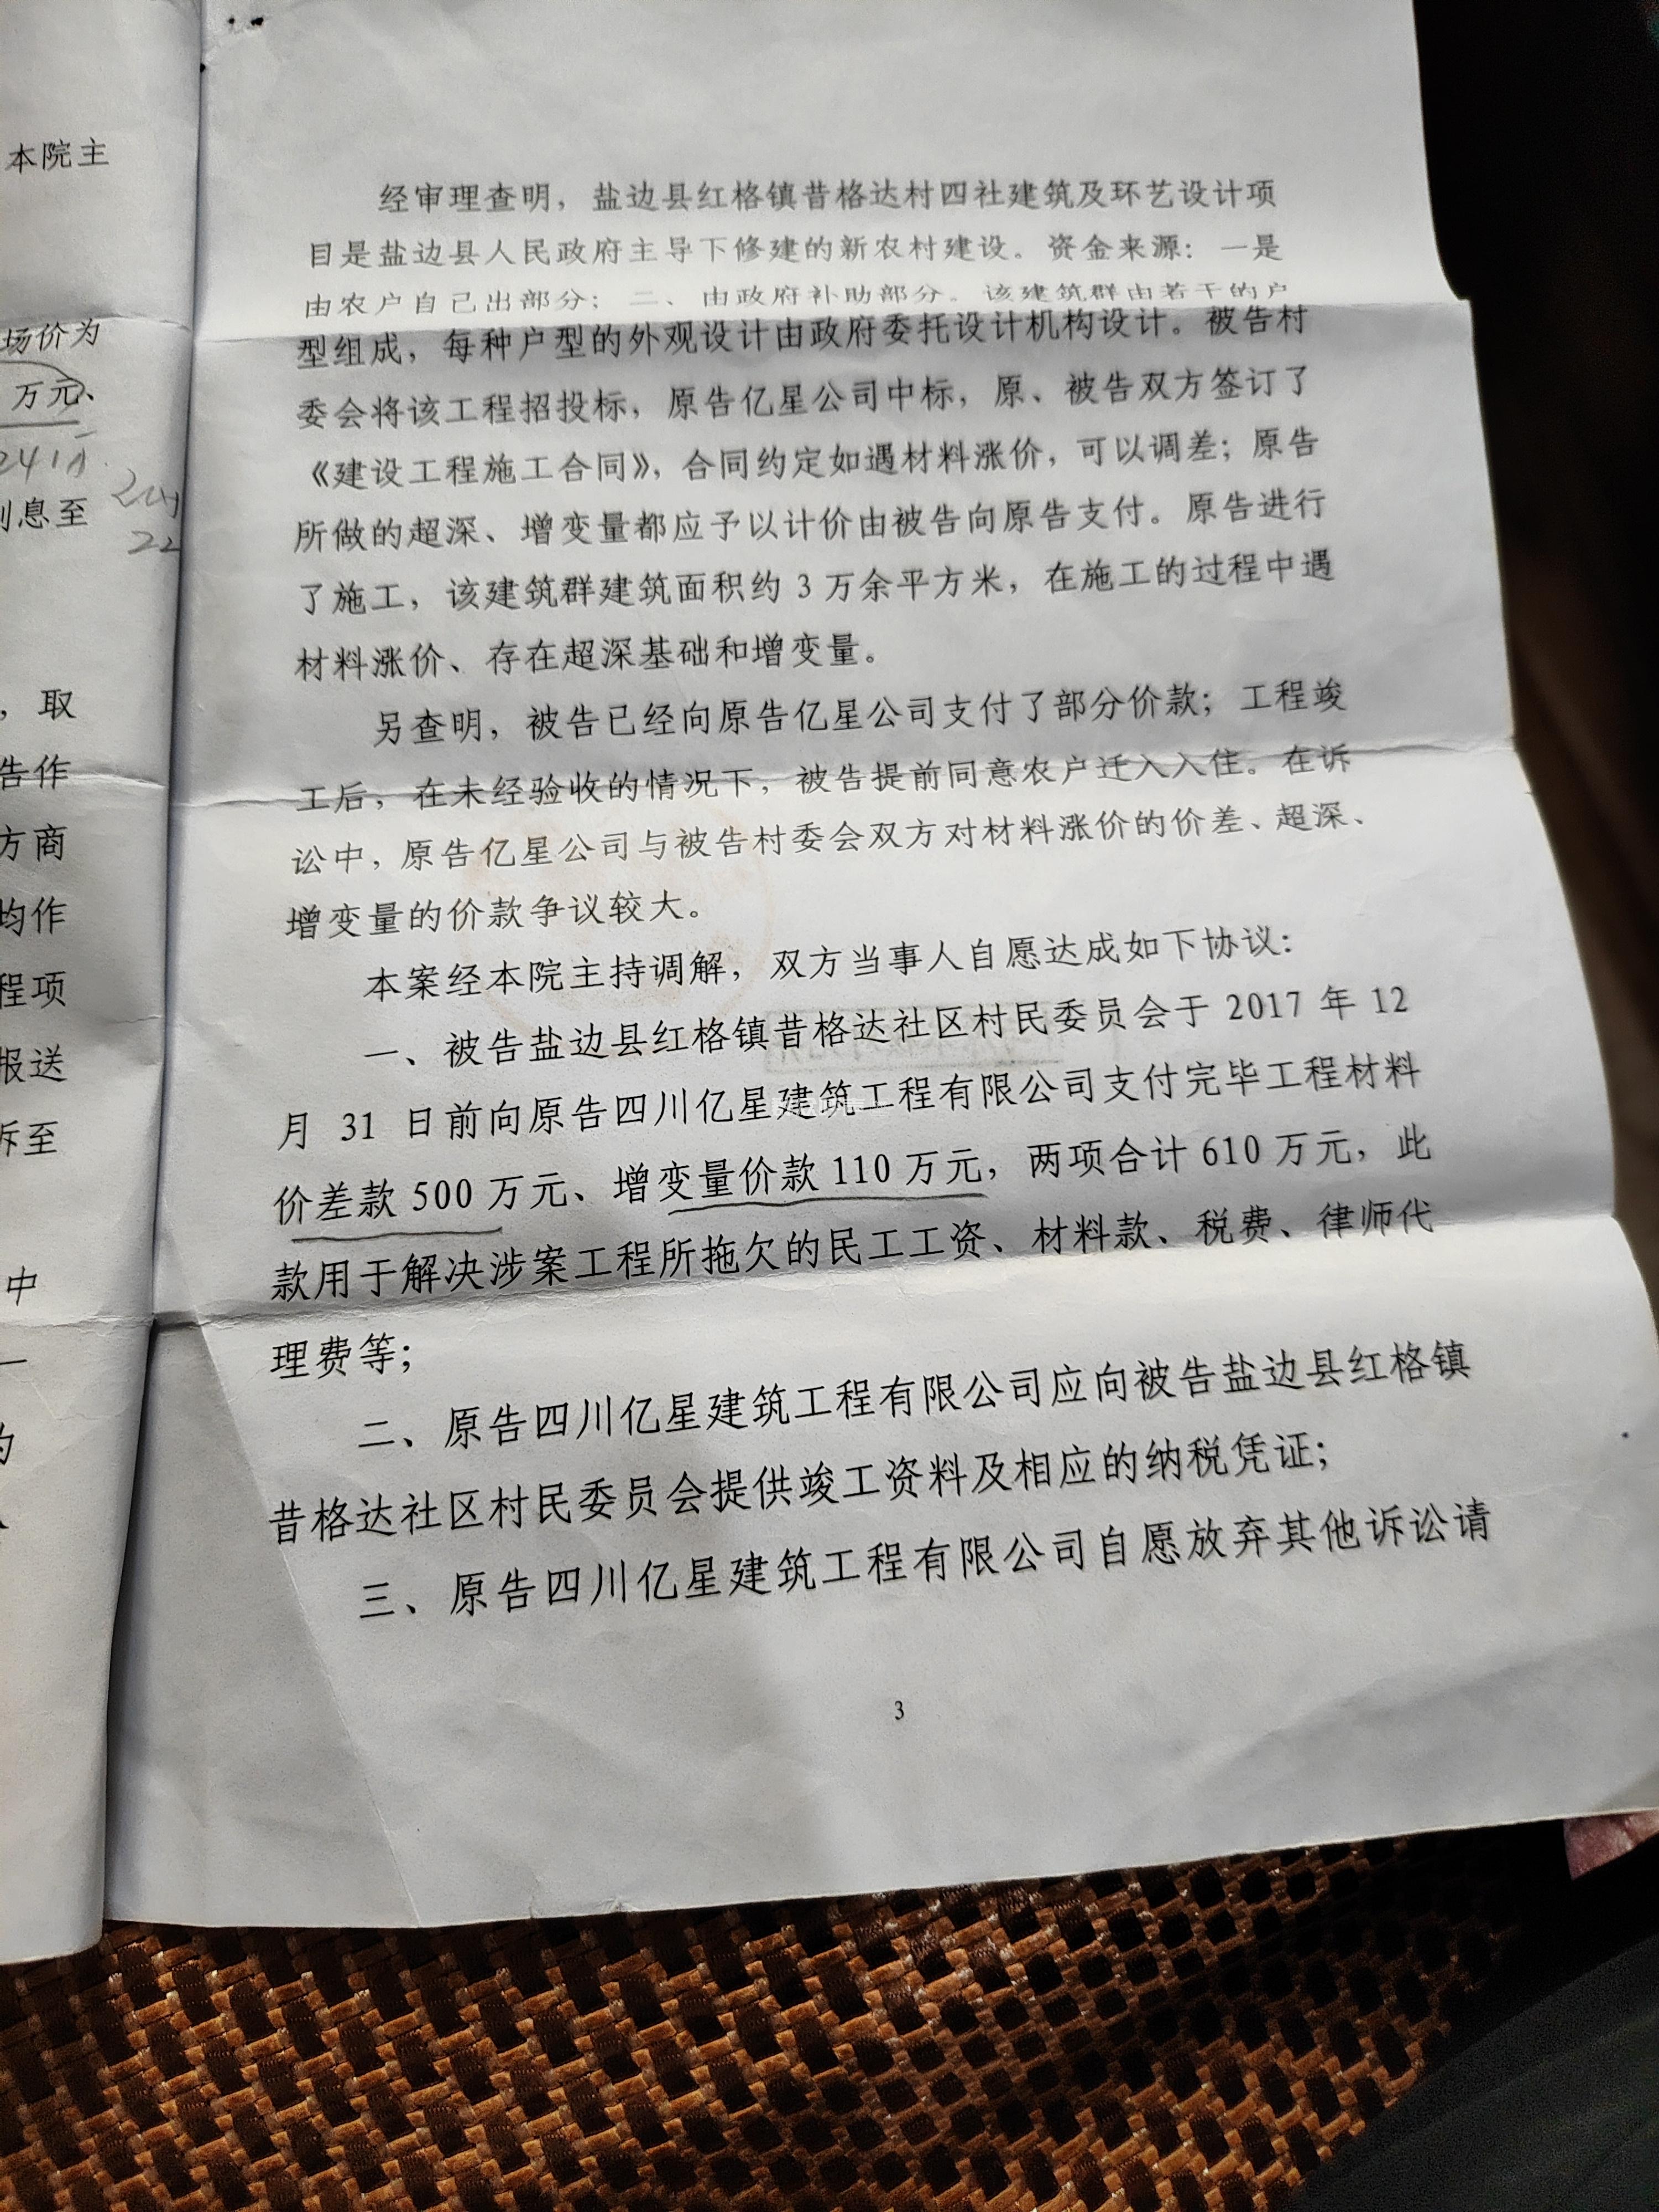 本院主
场价为
万元、
241万
利息至
22
，取
告作
方商
均作
程项
报送
诉至
中
一
经审理查明，盐边县红格镇昔格达村四社建筑及环艺设计项
目是盐边县人民政府主导下修建的新农村建设。资金来源：一是
由农户自己出部分；二、由政府补助部分。该建筑群由若干的户
型组成，每种户型的外观设计由政府委托设计机构设计。被告村
委会将该工程招投标，原告亿星公司中标，原、被告双方签订了
《建设工程施工合同》，合同约定如遇材料涨价，可以调差；原告
所做的超深、增变量都应予以计价由被告向原告支付。原告进行
了施工，该建筑群建筑面积约3万余平方米，在施工的过程中遇
材料涨价、存在超深基础和增变量。
另查明，被告已经向原告亿星公司支付了部分价款；工程竣
工后，在未经验收的情况下，被告提前同意农户迁入入住。在诉
讼中，原告亿星公司与被告村委会双方对材料涨价的价差、超深、
增变量的价款争议较大。
本案经本院主持调解，双方当事人自愿达成如下协议：
一、被告盐边县红格镇昔格达社区村民委员会于2017年12
月31日前向原告四川亿星建筑工程有限公司支付完毕工程材料
价差款500万元、增变量价款110万元，两项合计610万元，此
款用于解决涉案工程所拖欠的民工工资、材料款、税费、律师代
理费等；
二、原告四川亿星建筑工程有限公司应向被告盐边县红格镇
昔格达社区村民委员会提供竣工资料及相应的纳税凭证；
三、原告四川亿星建筑工程有限公司自愿放弃其他诉讼请
3